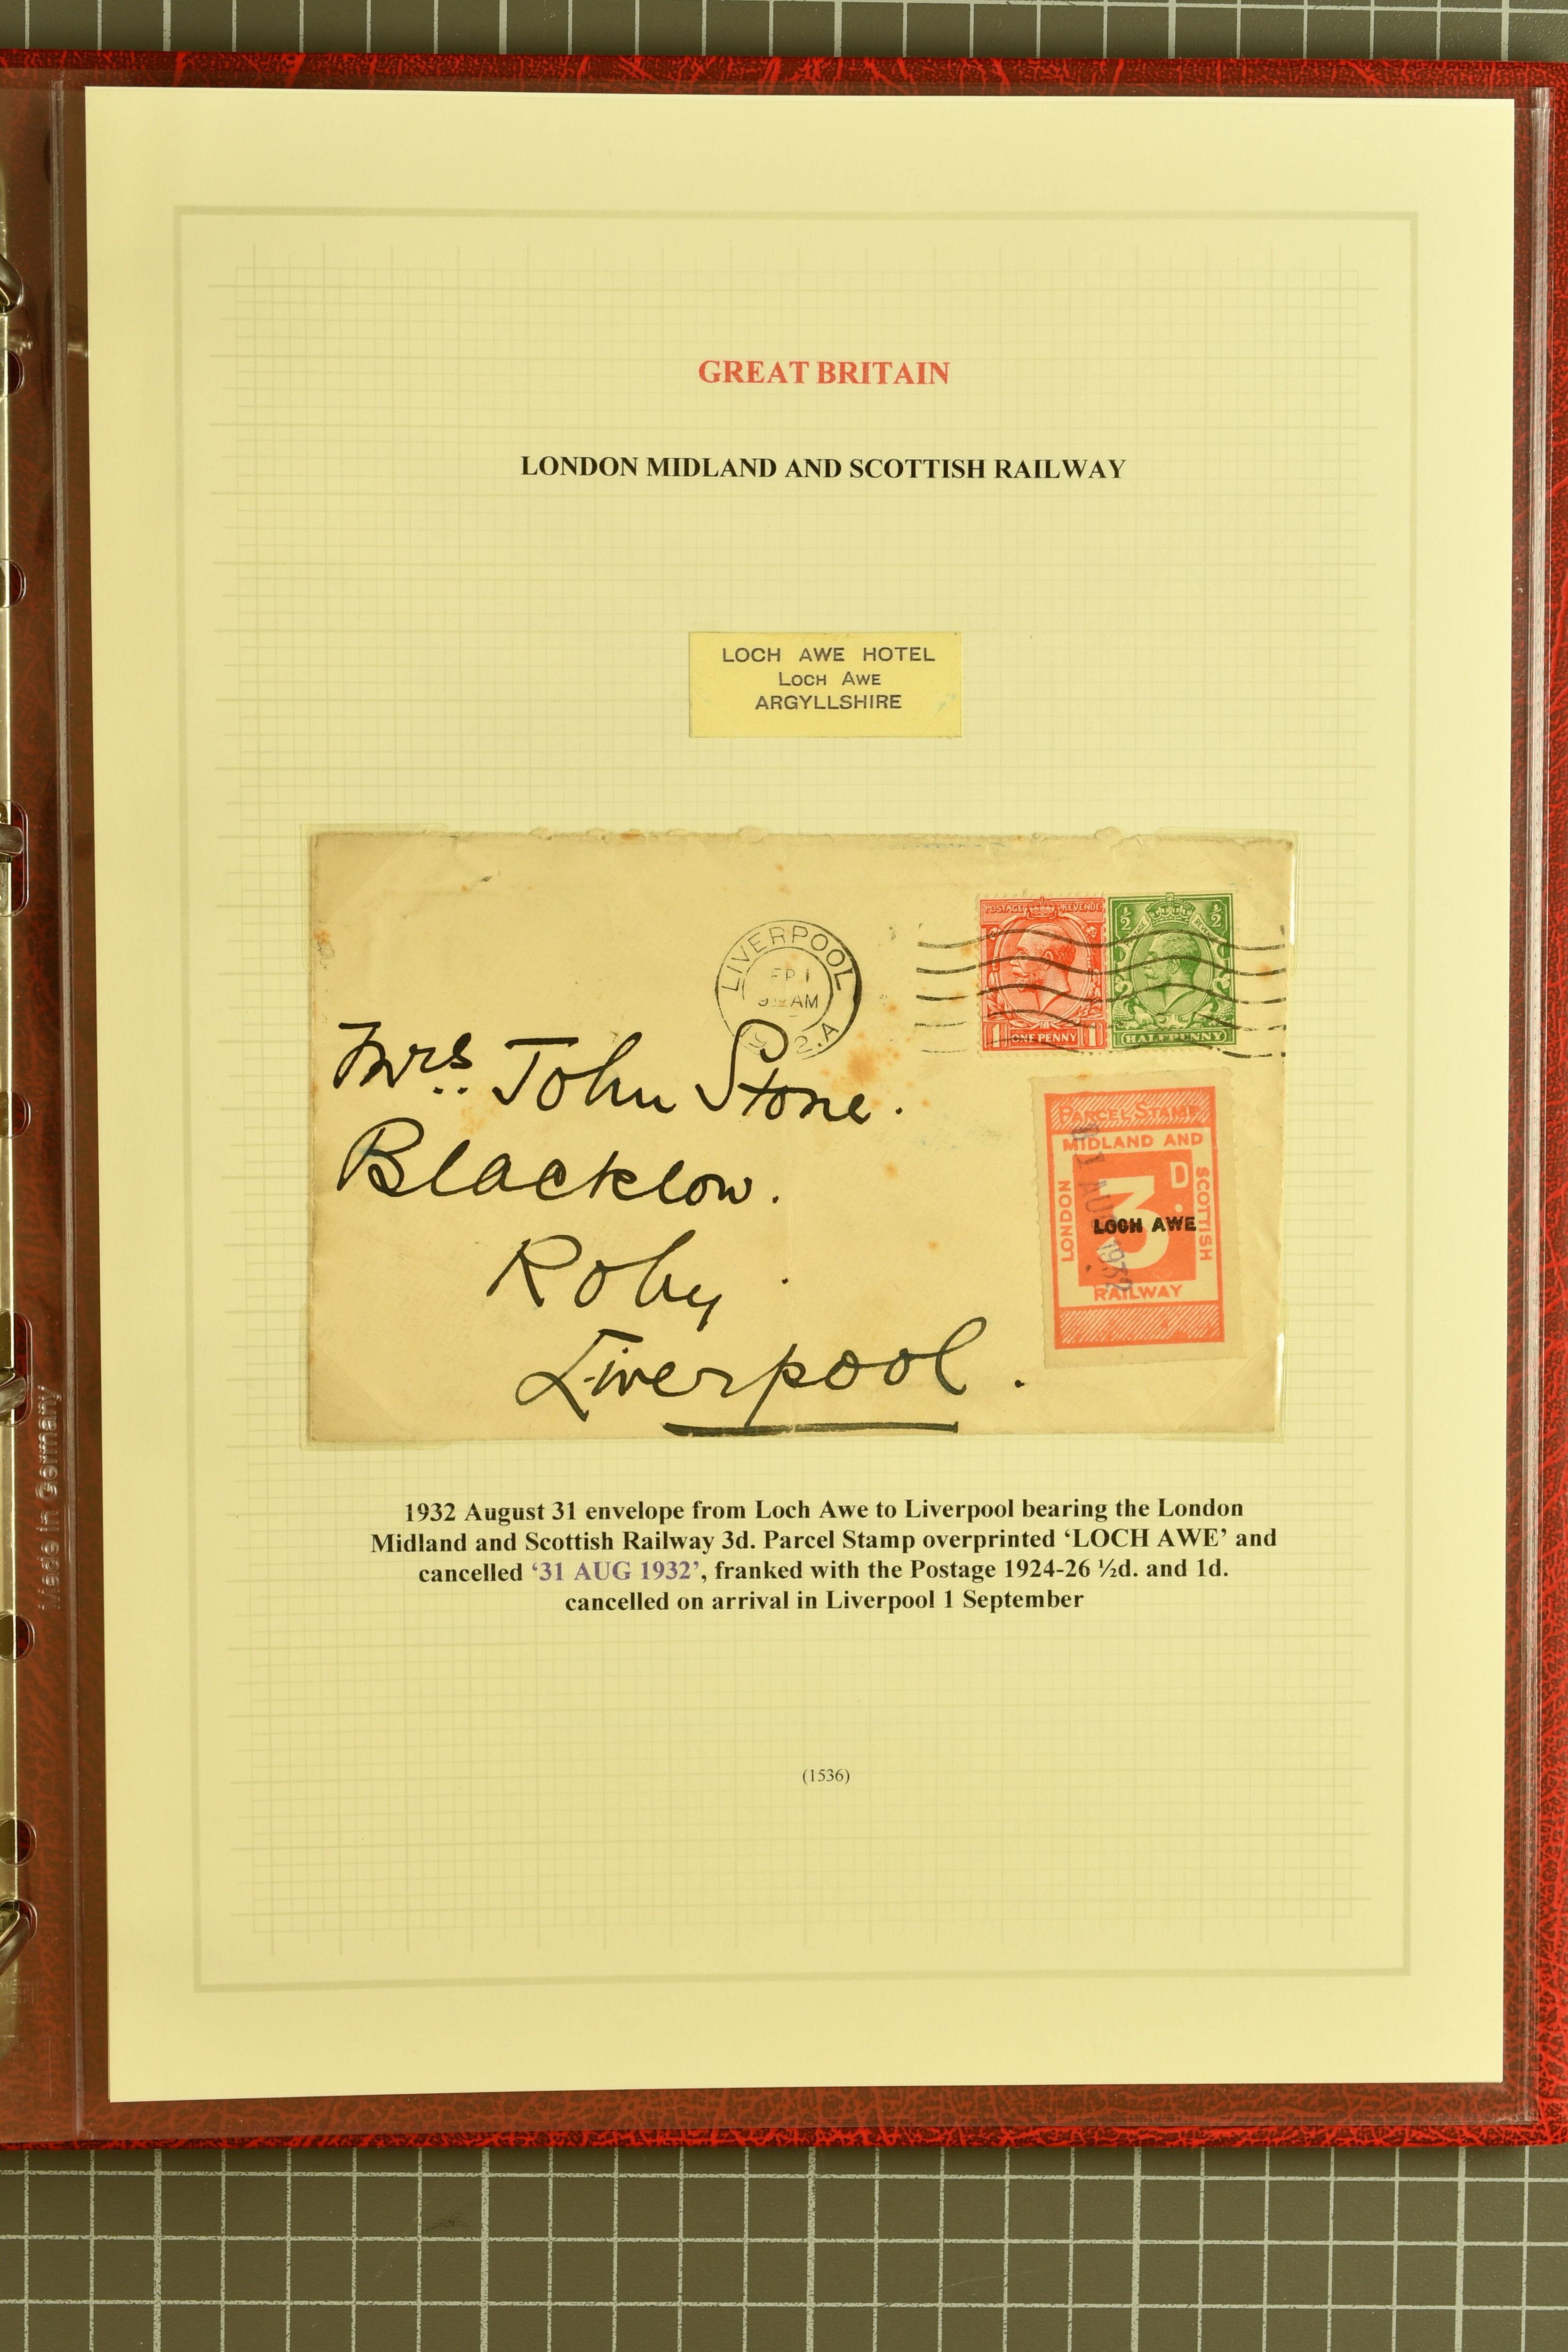 GREAT BRITAIN
LONDON MIDLAND AND SCOTTISH RAILWAY
LOCH AWE HOTEL
LOCH AWE
ARGYLLSHIRE
LIVERPOOL
AM
2.A
POSTAGE REVENUE
1 ONE PENNY 1
½ ½
HALFPENNY
Mrs. John Stone.
Blacklow.
Roby
Liverpool.
PARCEL STAMP
MIDLAND AND
LONDON
SCOTTISH
3D
LOCH AWE
31 AUG 1932
RAILWAY
1932 August 31 envelope from Loch Awe to Liverpool bearing the London
Midland and Scottish Railway 3d. Parcel Stamp overprinted ‘LOCH AWE’ and
cancelled ‘31 AUG 1932’, franked with the Postage 1924-26 ½d. and 1d.
cancelled on arrival in Liverpool 1 September
(1536)
Made in Germany